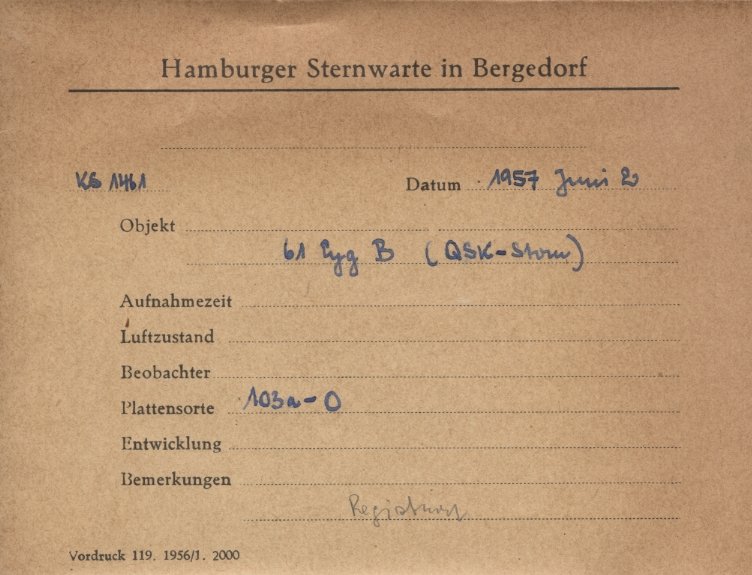 Hamburger Sternwarte in Bergedorf
KS 1461 Datum 1957 Juni 2
Objekt
61 Cyg B (QSK-Stern)
Aufnahmezeit
Luftzustand
Beobachter
Plattensorte 103a-O
Entwicklung
Bemerkungen
Registriert
Vordruck 119. 1956/1. 2000